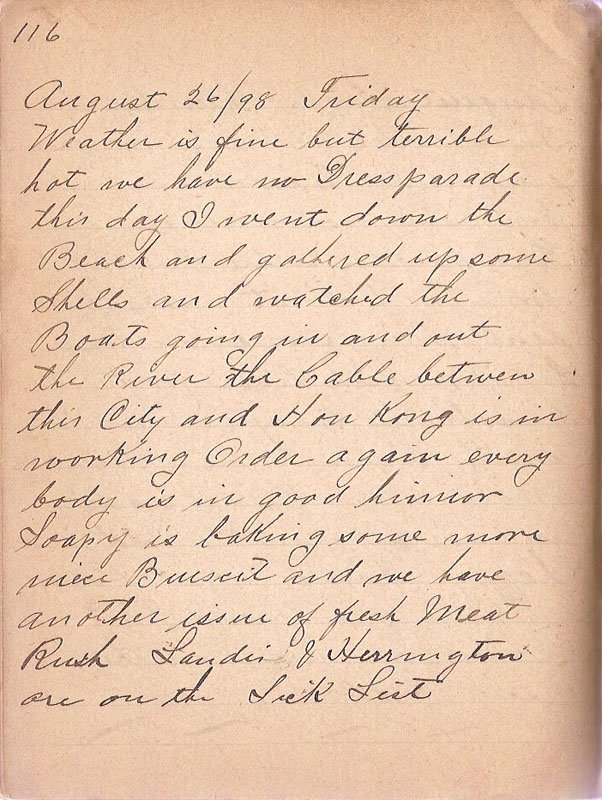 116
August 26/98 Friday
Weather is fine but terrible
hot we have no Dressparade
this day I went down the
Beach and gathered up some
Shells and watched the
Boats going in and out
the River the Cable betwen
this City and Hon Kong is in
working Order again every
body is in good himior
Soapy is baking some more
nice Buiscit and we have
another issue of fresh Meat
Rush Landis & Herrington
are on the Sick List